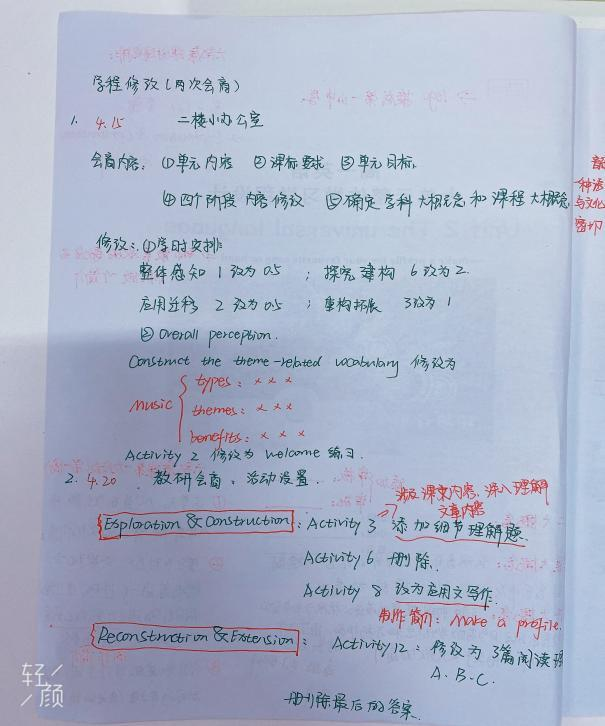 学程修改(两次会商)
1. 4.15 二楼小办公室
会商内容: ①单元内容 ②课标要求 ③单元目标
④四个阶段内容修改 ⑤确定学科大概念和课程大概念
修改: ①学时安排
整体感知 1改为0.5 ; 探究建构 6改为2.
应用迁移 2改为0.5 ; 重构拓展 3改为1
② Overall perception.
Construct the theme-related vocabulary 修改为
music { types: x x x
themes: x x x
benefits: x x x
Activity 2 修改为 welcome 练习.
2. 4.20 教研会商. 活动设置.
涉及课文内容, 深入理解
文章内容
Exploration & Construction: Activity 3 添加细节理解题.
Activity 6 删除.
Activity 8 改为应用文写作.
制作简介: make a profile.
Reconstruction & Extension: Activity 12: 修改为 3篇阅读理
A. B. C.
删除最后的答案.
一种语
与文化
密切
轻颜